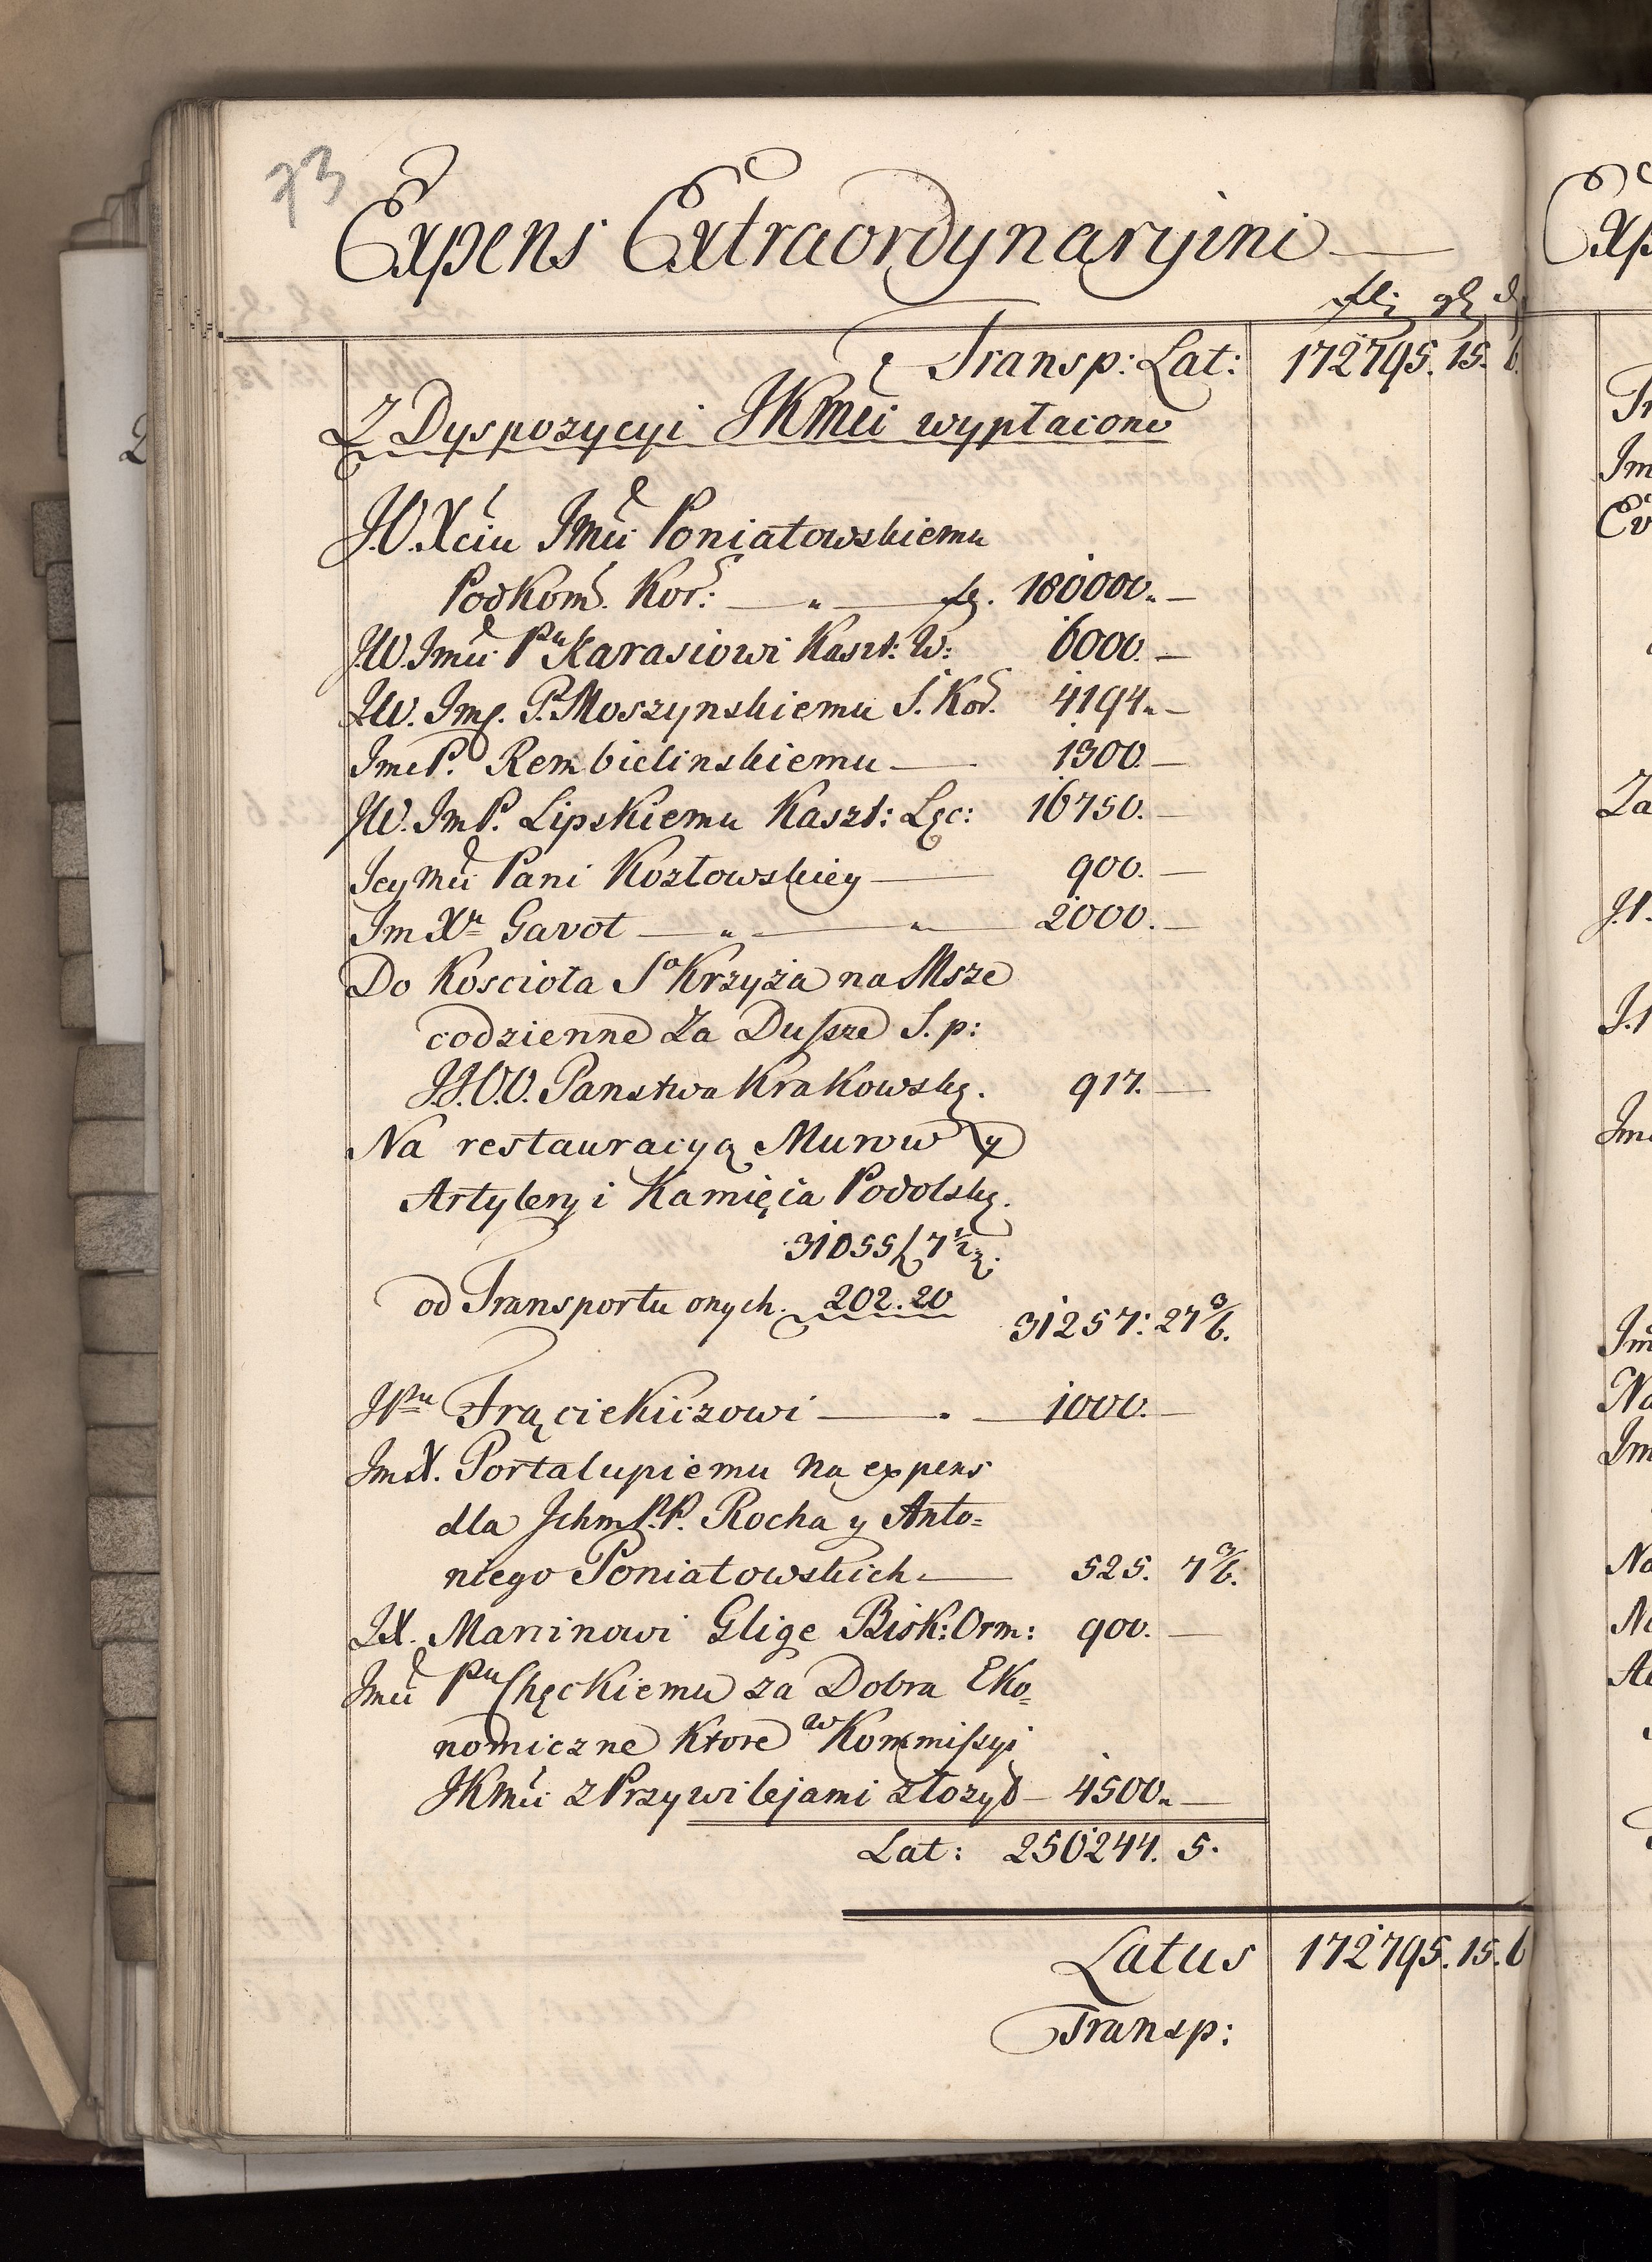 73
Expens Extraordynaryini
fl: gl d
Transp: Lat: 172795. 15. 6
Z Dyspozycyi JKMci wypłacono
J.O. Xciu Jmci Poniatowskiemu
PodKom. Kor: — " — fl. 180000. —
JW. Jmci Pu Karasiowi Kaszt: W: 6000. —
JW. Jmp. P. Moszynskiemu S. Kor. 4194. —
JmcP. Rembielinskiemu — 1300 —
JW. JmP. Lipskiemu Kaszt: Lęc: 16750. —
Jeymci Pani Kozłowskiey — 900. —
Jm Xu Gavot — " — " — 2000. —
Do Koscioła So Krzyża na Msze
codzienne Za Dusze S. p:
J.J.O.O. Panstwa Krakowskę. 917. —
Na restauracyą Murow y
Artyleryi Kamięća Podolskę.
31055 / 7 1/2
od Transportu onych. 202.20
31257: 27 3/6.
JPu Frąckiewiczowi — . — 1000. —
JmX. Portalupiemu na expens
dla Jchm P.P. Rocha y Anto=
niego Poniatowskich — 525. 7 3/6.
JX. Marcinowi Glige Bisk: Orm: 900. —
Jmci Pu Chęckiemu za Dobra Eko=
nomiczne Ktore w Kommissyi
JKMci z Przywilejami złozył — 4500. —
Lat: 250244. 5.
Latus 172795. 15. 6
Transp: